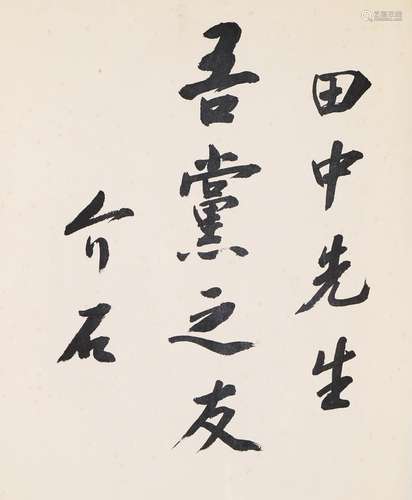 田中先生
吾黨之友
介石